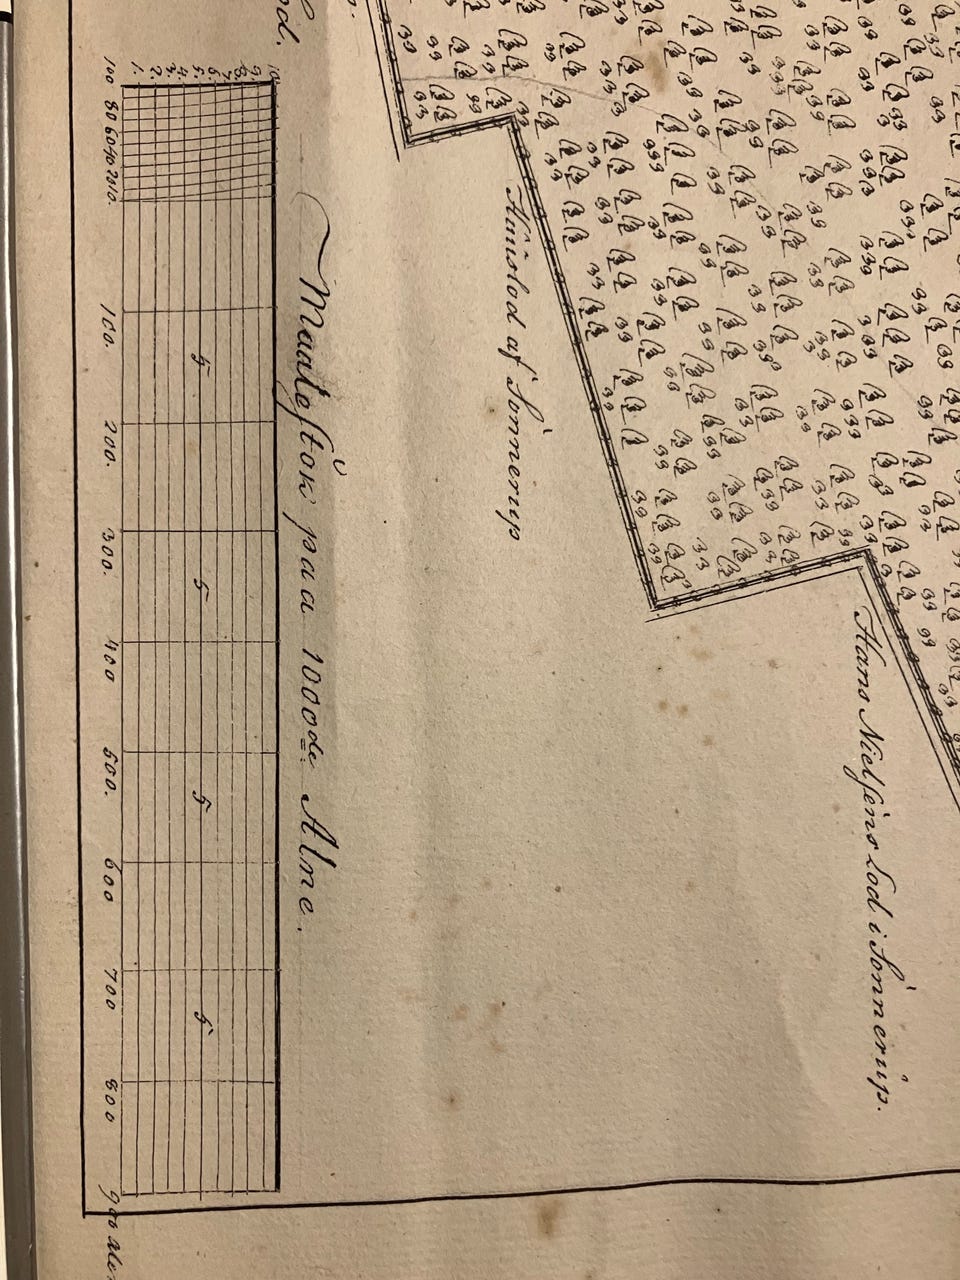 Hans Nielsens Lod i Sönnerup.
Huuslod af Sönnerup
Maalestok paa 1000de Alne.
10
9
8
7
6
5 5 5 5 5
4
3
2
1.
100 80 60 40 20 10. 100. 200. 300. 400 500. 600 700 800 900 alen